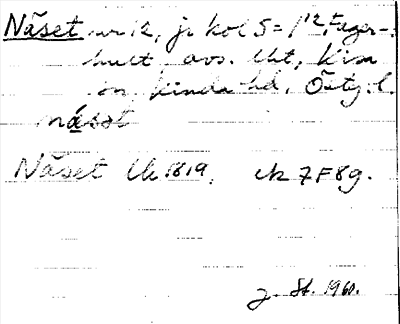 Näset nr 12, jr kol 5 = 1/12, Fager-
hult avs. lht, Kisa
sn Kinda hd, Östg. l.
näsət
Näset Uk 1819, ek 7F8g.
J. St. 1960.